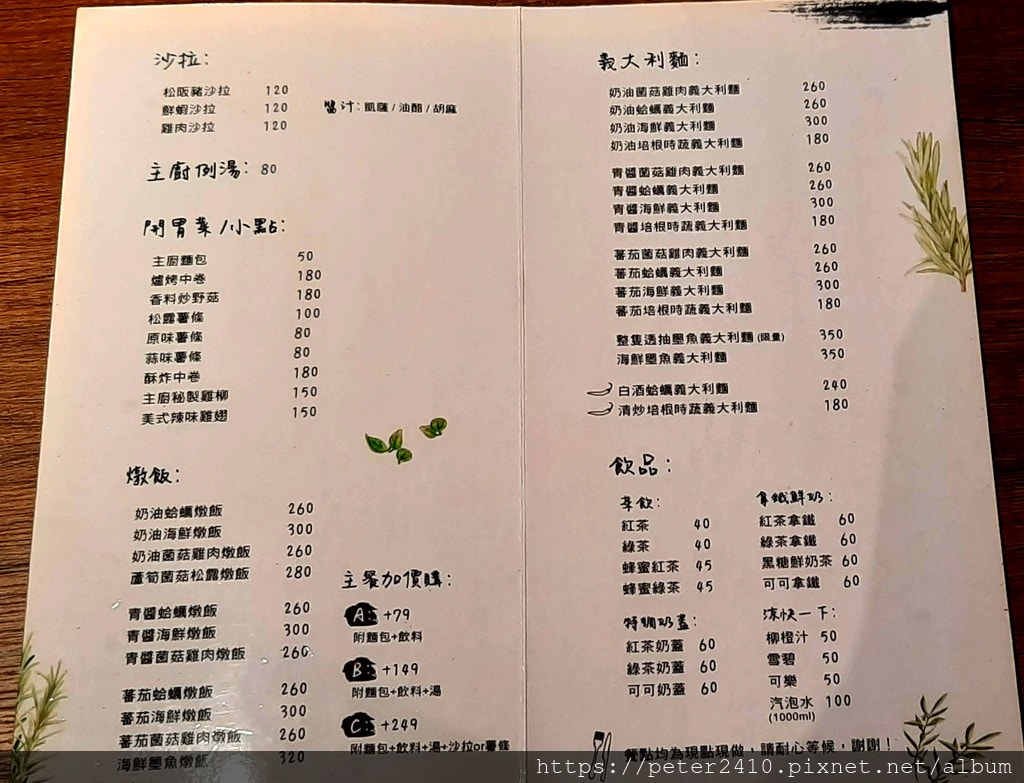 沙拉：
松阪豬沙拉 120
鮮蝦沙拉 120
雞肉沙拉 120
醬汁：凱薩 / 油醋 / 胡麻
主廚例湯：80
開胃菜/小點：
主廚麵包 50
爐烤中卷 180
香料炒野菇 180
松露薯條 100
原味薯條 80
蒜味薯條 80
酥炸中卷 180
主廚秘製雞柳 150
美式辣味雞翅 150
燉飯：
奶油蛤蠣燉飯 260
奶油海鮮燉飯 300
奶油菌菇雞肉燉飯 260
蘆筍菌菇松露燉飯 280
青醬蛤蠣燉飯 260
青醬海鮮燉飯 300
青醬菌菇雞肉燉飯 260
蕃茄蛤蠣燉飯 260
蕃茄海鮮燉飯 300
蕃茄菌菇雞肉燉飯 260
海鮮墨魚燉飯 320
主餐加價購：
A：+79
附麵包+飲料
B：+149
附麵包+飲料+湯
C：+249
附麵包+飲料+湯+沙拉or薯條
義大利麵：
奶油菌菇雞肉義大利麵 260
奶油蛤蠣義大利麵 260
奶油海鮮義大利麵 300
奶油培根時蔬義大利麵 180
青醬菌菇雞肉義大利麵 260
青醬蛤蠣義大利麵 260
青醬海鮮義大利麵 300
青醬培根時蔬義大利麵 180
蕃茄菌菇雞肉義大利麵 260
蕃茄蛤蠣義大利麵 260
蕃茄海鮮義大利麵 300
蕃茄培根時蔬義大利麵 180
整隻透抽墨魚義大利麵(限量) 350
海鮮墨魚義大利麵 350
白酒蛤蠣義大利麵 240
清炒培根時蔬義大利麵 180
飲品：
茶飲：
紅茶 40
綠茶 40
蜂蜜紅茶 45
蜂蜜綠茶 45
拿鐵鮮奶：
紅茶拿鐵 60
綠茶拿鐵 60
黑糖鮮奶茶 60
可可拿鐵 60
特調奶蓋：
紅茶奶蓋 60
綠茶奶蓋 60
可可奶蓋 60
涼快一下：
柳橙汁 50
雪碧 50
可樂 50
汽泡水 100
(1000ml)
餐點均為現點現做，請耐心等候，謝謝！
https://peter2410.pixnet.net/album